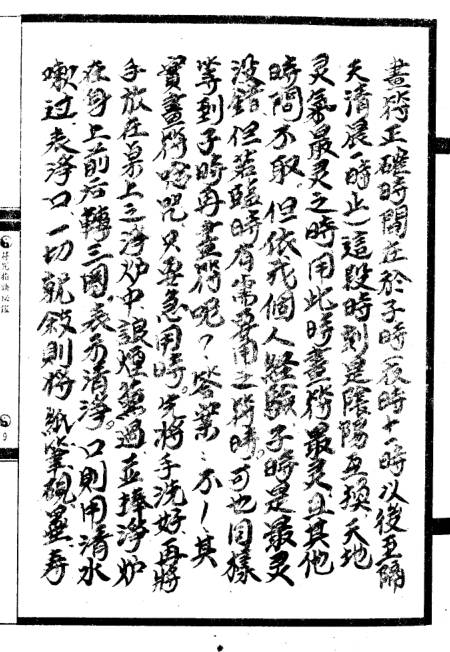 畫符正確時間在於子時(夜時十一時以後至隔
天清晨一時止)這段時刻是陰陽互換天地
灵氣最灵之時用此時畫符最灵且其他
時間不取、但依我個人経驗子時是最灵
没錯但若臨時有需要用之符時。可也同樣
等到子時再畫符呢?、答案:不!其
實畫符唸咒、只要急用時。先將手洗好、再將
手放在桌上之淨炉中、讓煙薰過、並捧淨炉
在身上前后轉三圈、表示清淨。口則用清水
嗽过、表淨口、一切就敘則將紙筆硯墨壽
符咒指訣秘鑑
9